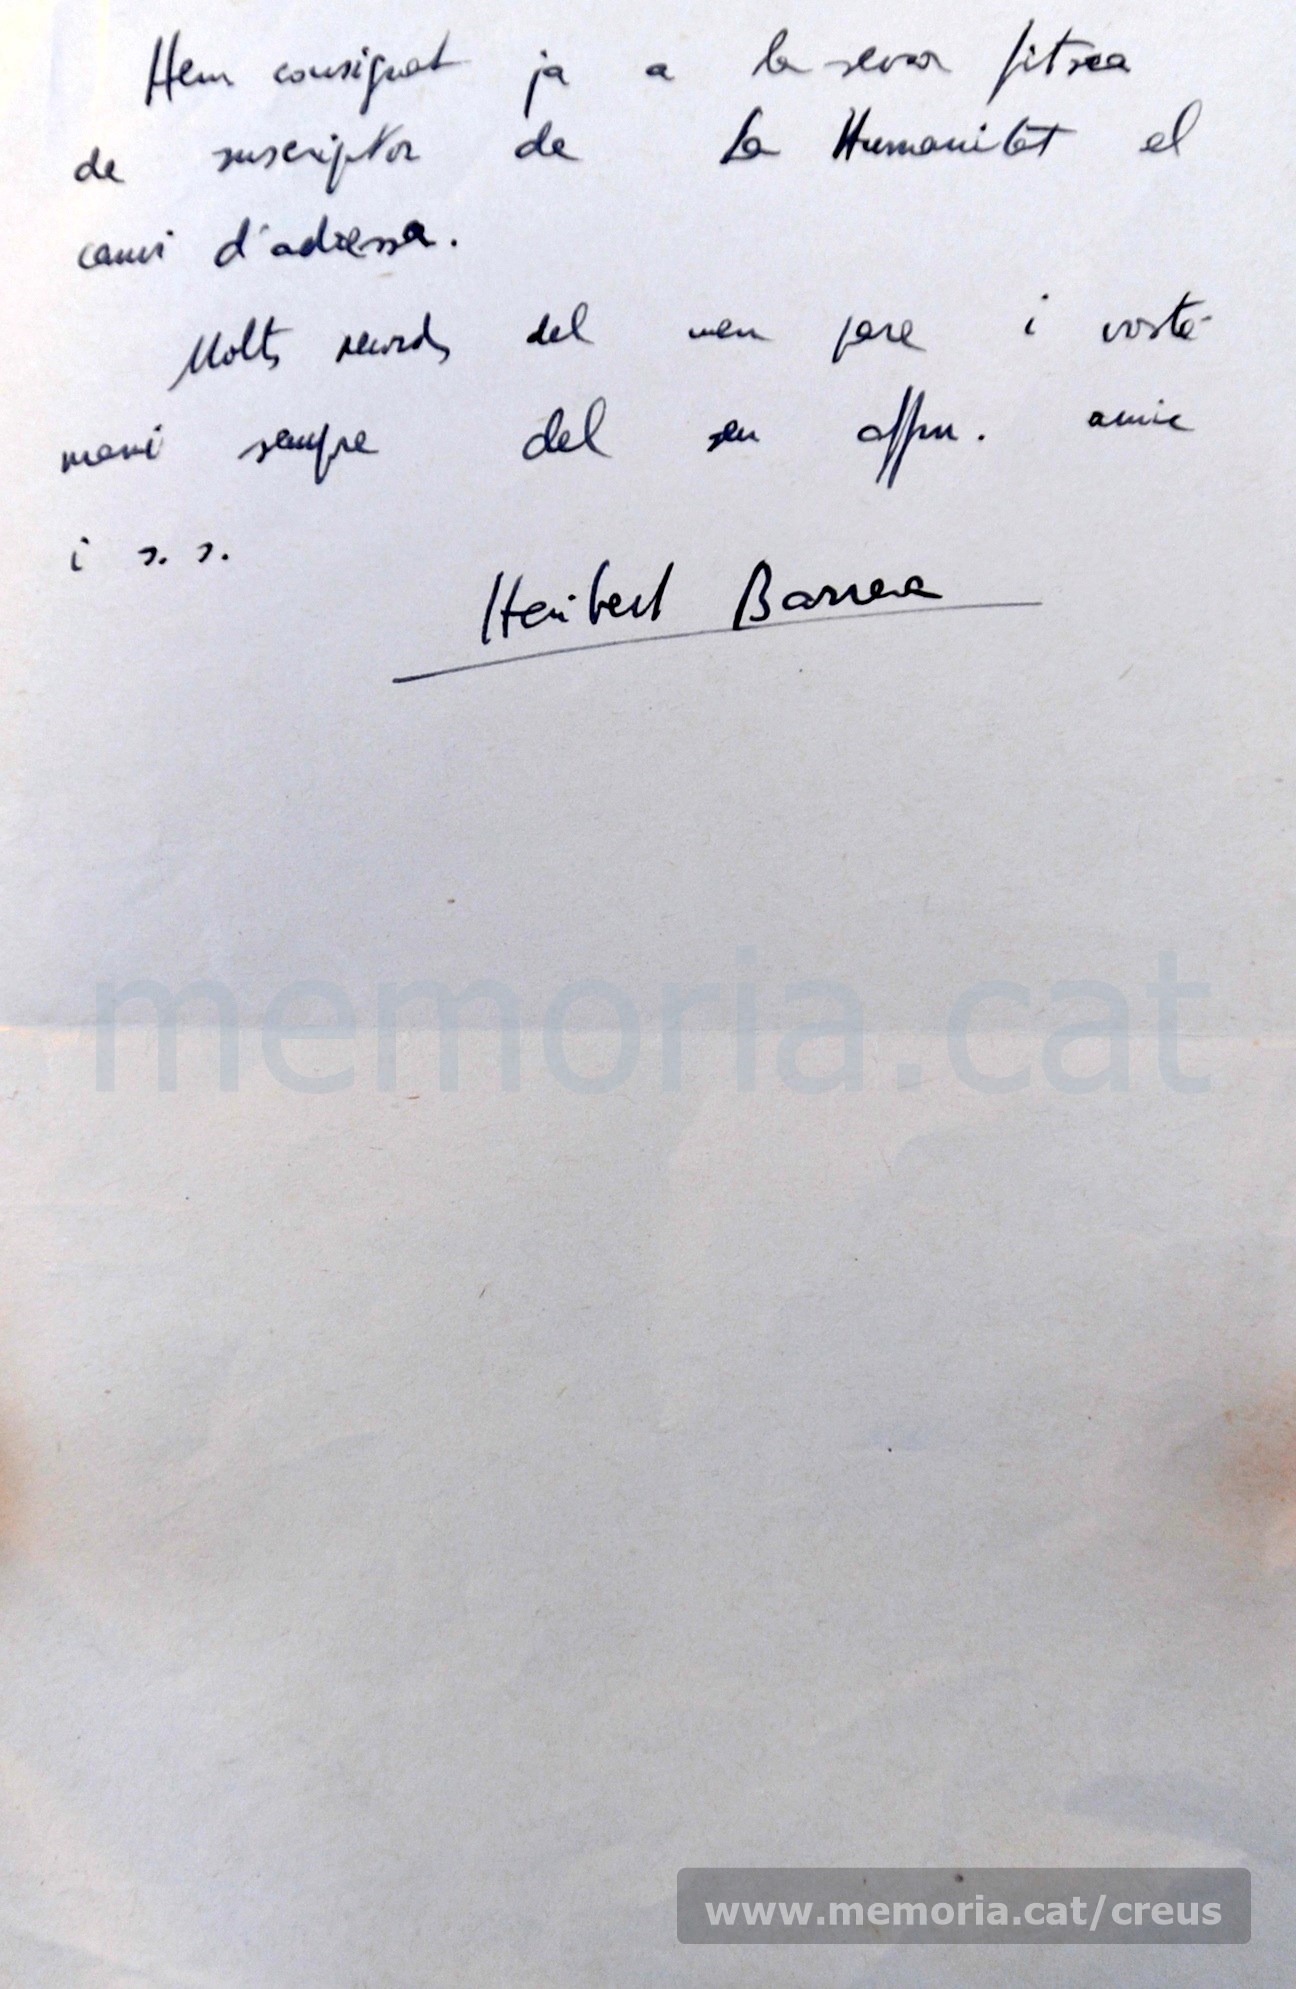 Hem consignat ja a la seva fitxa
de suscriptor de La Humanitat el
canvi d'adressa.
Molts records del meu pare i vostè
mani sempre del seu affm. amic
i s. s.
Heribert Barrera
memoria.cat
www.memoria.cat/creus